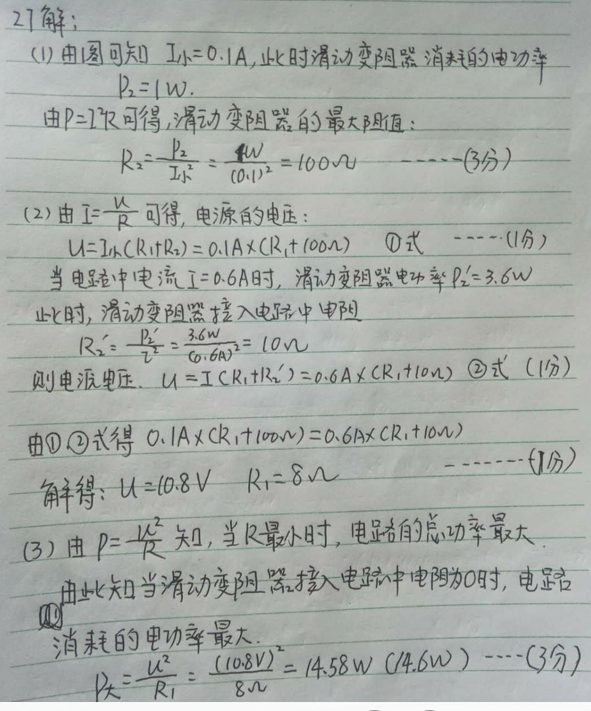 27解:
(1) 由图可知 I小=0.1A,此时滑动变阻器消耗的电功率
P₂=1W.
由P=I²R可得,滑动变阻器的最大阻值:
R₂=P₂/I小²=1W/(0.1)²=100Ω ------(3分)
(2) 由I=U/R可得,电源的电压:
U=I小(R₁+R₂)=0.1A×(R₁+100Ω) ①式 -----(1分)
当电路中电流I=0.6A时,滑动变阻器电功率P₂′=3.6W
此时,滑动变阻器接入电路中电阻
R₂′=P₂′/I²=3.6W/(0.6A)²=10Ω
则电源电压. U=I(R₁+R₂′)=0.6A×(R₁+10Ω) ②式 (1分)
由①②式得 0.1A×(R₁+100Ω)=0.6A×(R₁+10Ω)
解得:U=10.8V R₁=8Ω -------(1分)
(3) 由P=U²/R知,当R最小时,电路的总功率最大.
由此知当滑动变阻器接入电路中电阻为0时,电路
消耗的电功率最大.
P大=U²/R₁=(10.8V)²/8Ω=14.58W (14.6W) ----(3分)